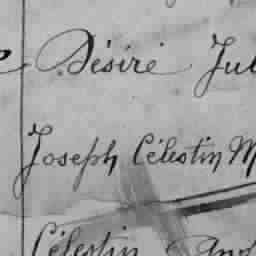 Désiré Jul
Joseph Célestin M
Célestin